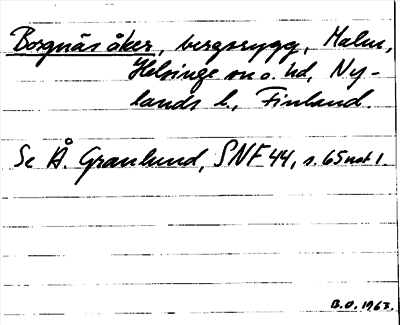 Borgnäs åker, bergsrygg, Malm,
Helsinge sn o. hd, Ny-
lands l., Finland.
Se Å. Granlund, SNF 44, s. 65 not 1.
B.O. 1963.